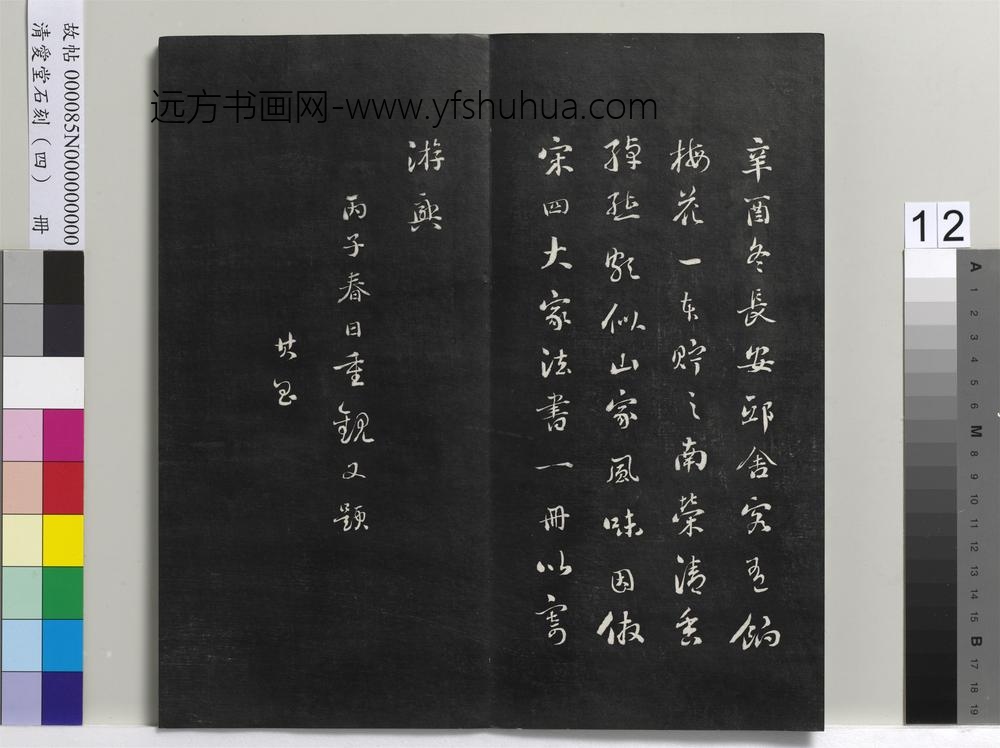 远方书画网-www.yfshuhua.com
辛酉冬長安邸舍客有餉
梅花一本貯之南榮清香
頗似山家風味因倣
宋四大家法書一冊以寄
游興
丙子春日重觀又題
其昌
故帖 000085N000000000
清愛堂石刻（四） 冊
12
A 1 2 3 4 5 6 M 8 9 10 11 12 13 14 15 B 17 18 19